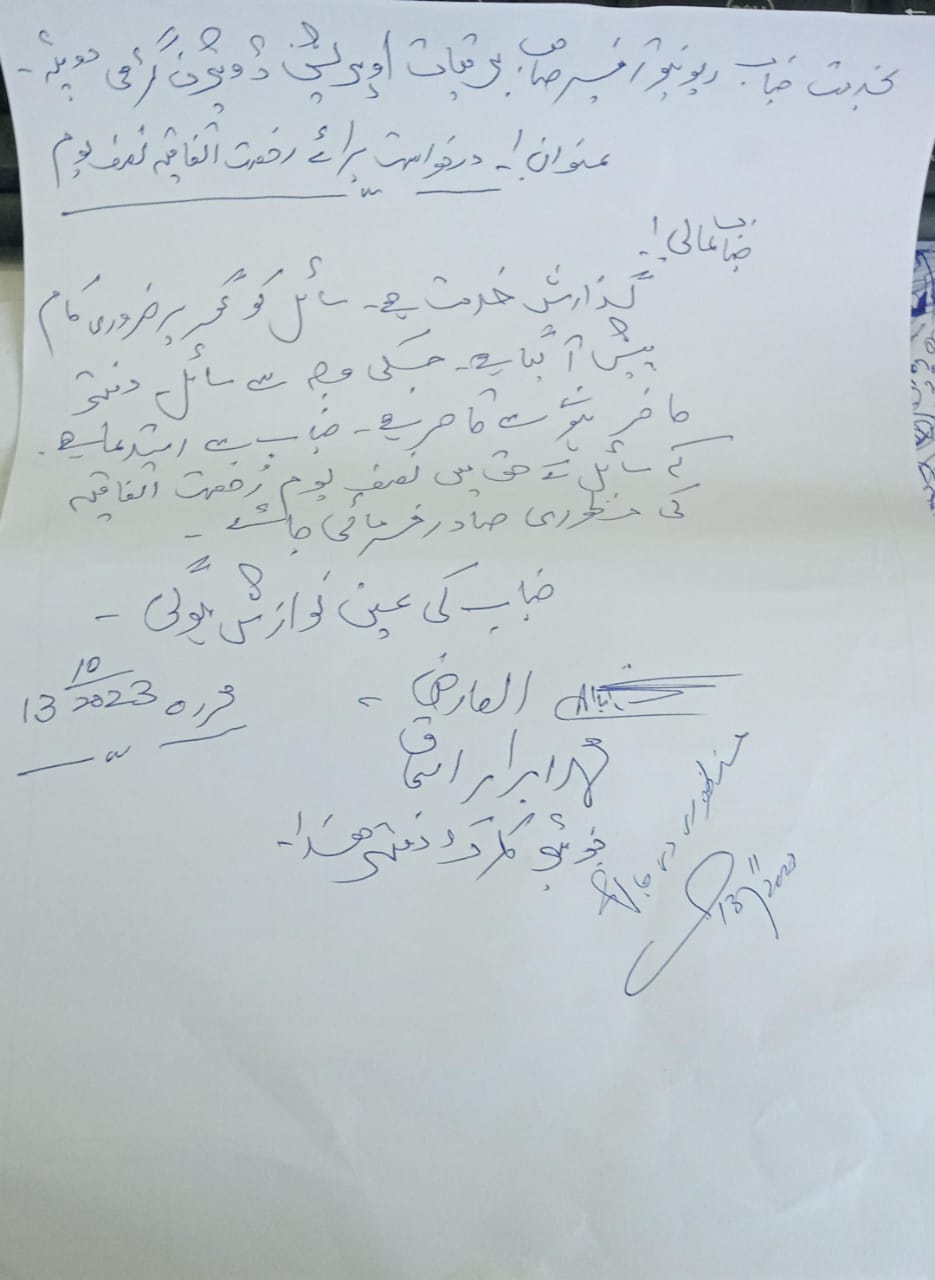 بخدمت جناب ریونیو آفیسر صاحب برقیات اوپریشن ڈویثرن گڑھی دوپٹہ۔
عنوان!۔ درخواست برائے رخصت اتفاقیہ نصف یوم
جناب عالی!۔
گذارش خدمت ہے۔ سائل کو گھر پر ضروری کام
پیش آ گیا ہے۔ جسکی وجہ سے سائل دفتر
حاضر ہونے سے قاصر ہے۔ جناب سے استدعا ہے۔
کے سائل کے حق میں نصف یوم رُخصت اتفاقیہ
کی منظوری صادر فرمائی جائے۔
جناب کی عین نوازش ہوگی۔
العارض۔
محررہ 13/10/2023
محمد ابرار اسحاق
جونیئر کلرک دفتر ھذا۔
منظوری دی
13/11